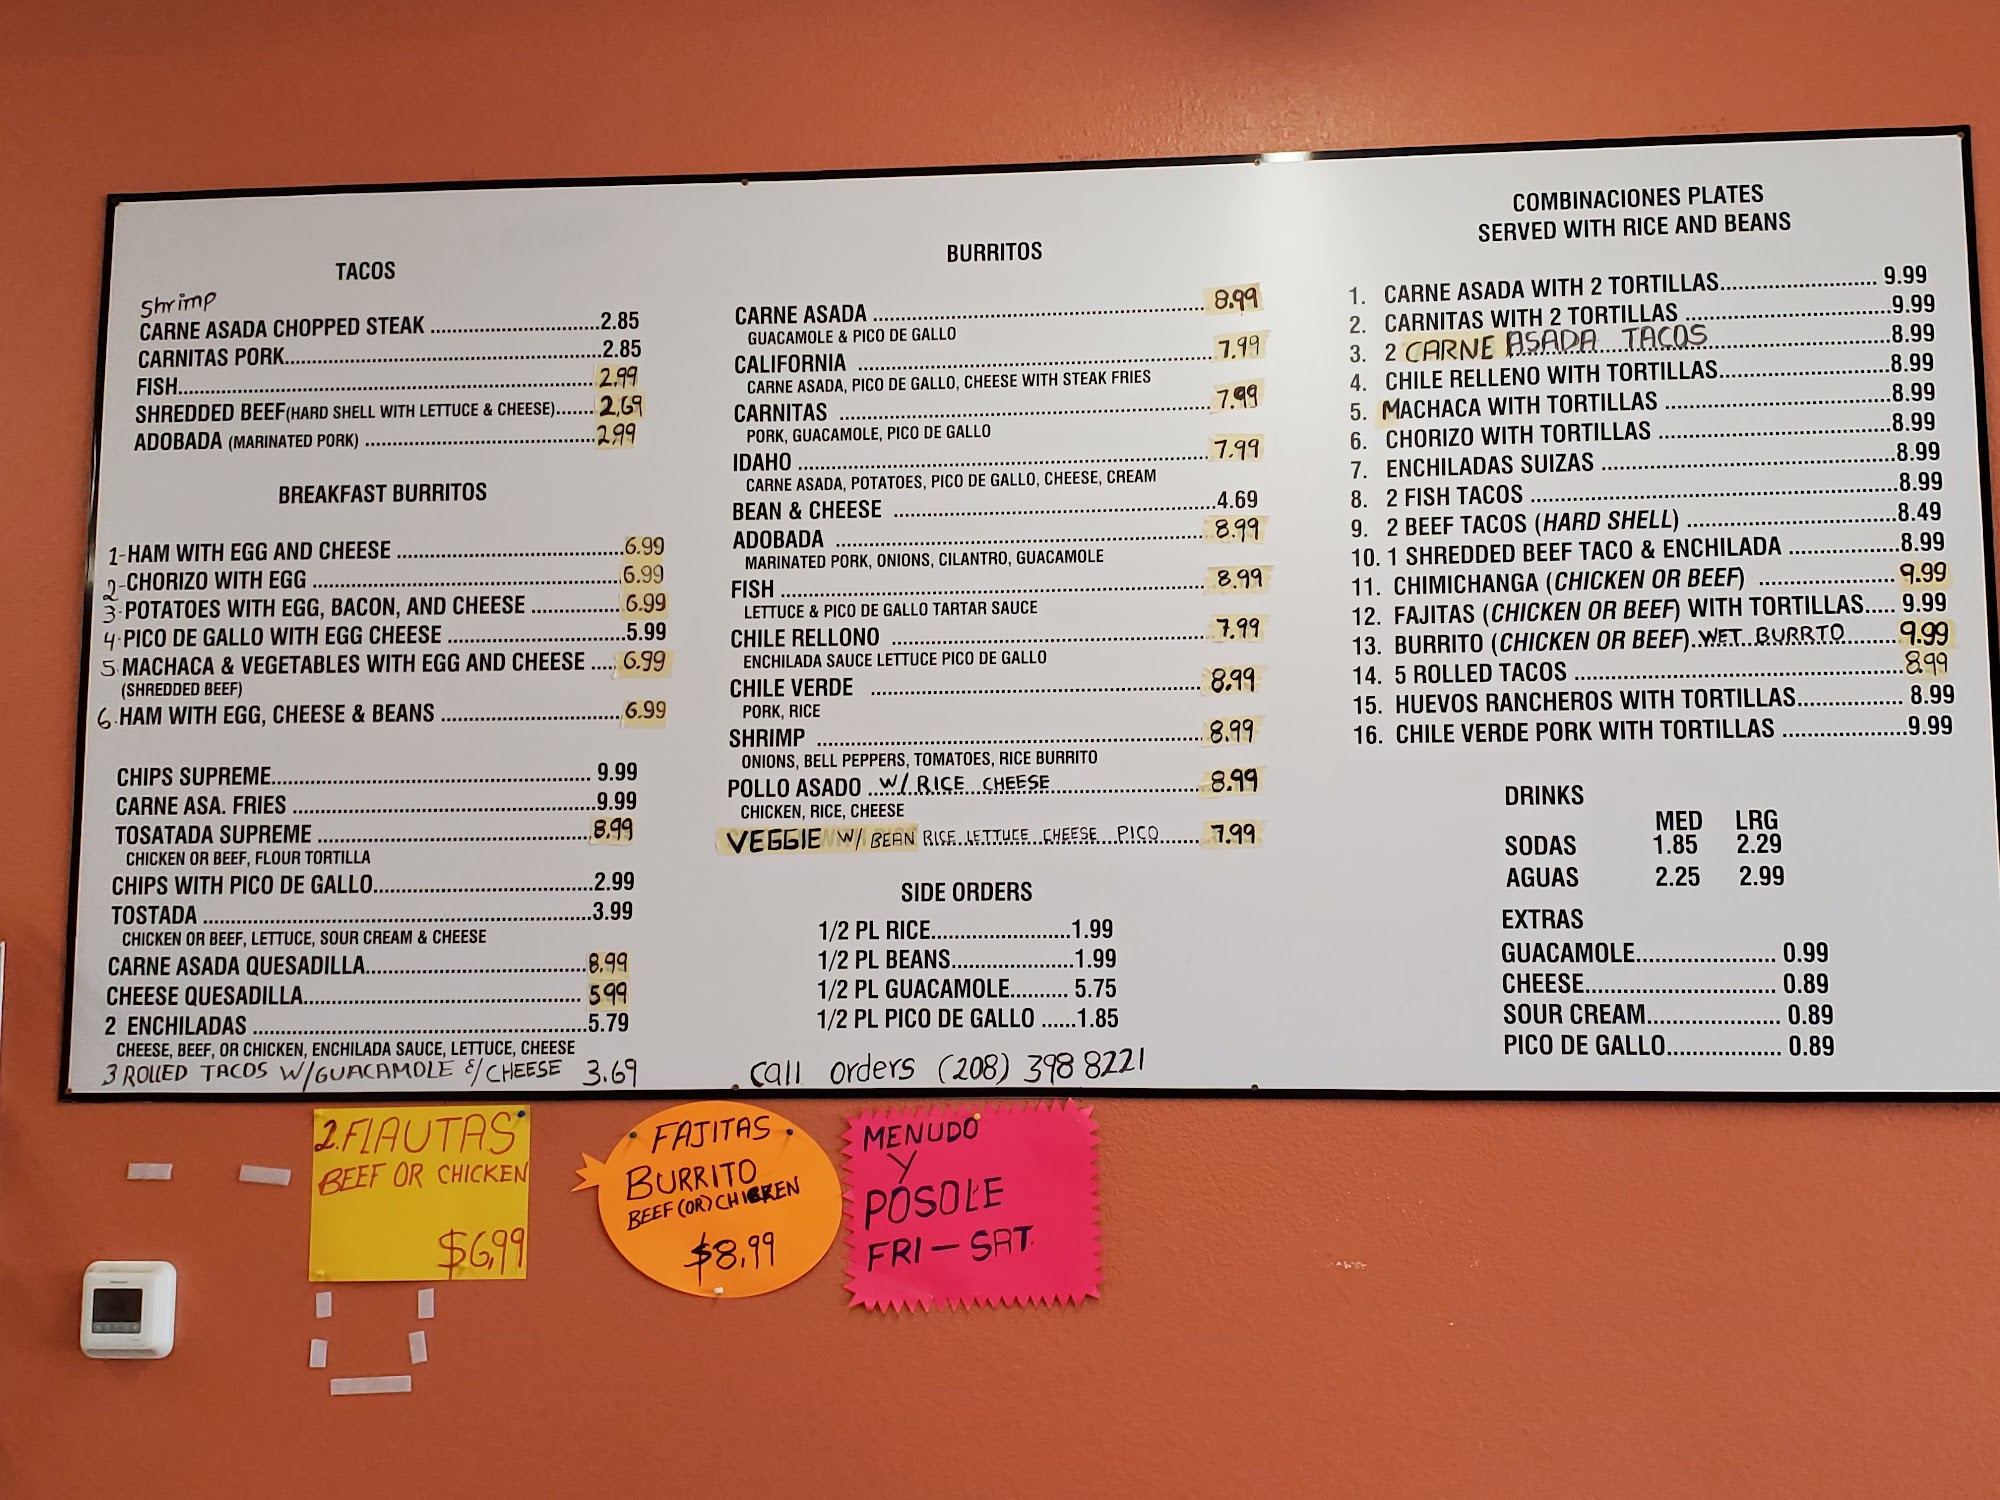 TACOS
Shrimp
CARNE ASADA CHOPPED STEAK ..........................2.85
CARNITAS PORK................................................2.85
FISH................................................................2.99
SHREDDED BEEF(HARD SHELL WITH LETTUCE & CHEESE)......2,69
ADOBADA (MARINATED PORK) ...................................2.99
BREAKFAST BURRITOS
1-HAM WITH EGG AND CHEESE ...................................6.99
2-CHORIZO WITH EGG ................................................6.99
3-POTATOES WITH EGG, BACON, AND CHEESE ..............6.99
4-PICO DE GALLO WITH EGG CHEESE ...........................5.99
5-MACHACA & VEGETABLES WITH EGG AND CHEESE .....6.99
(SHREDDED BEEF)
6-HAM WITH EGG, CHEESE & BEANS ............................6.99
CHIPS SUPREME................................................. 9.99
CARNE ASA. FRIES ................................................9.99
TOSATADA SUPREME ...........................................8.99
CHICKEN OR BEEF, FLOUR TORTILLA
CHIPS WITH PICO DE GALLO...................................2.99
TOSTADA ............................................................3.99
CHICKEN OR BEEF, LETTUCE, SOUR CREAM & CHEESE
CARNE ASADA QUESADILLA...................................8.99
CHEESE QUESADILLA........................................... 5.99
2 ENCHILADAS ....................................................5.79
CHEESE, BEEF, OR CHICKEN, ENCHILADA SAUCE, LETTUCE, CHEESE
3 ROLLED TACOS W/GUACAMOLE &/CHEESE 3.69
BURRITOS
CARNE ASADA ....................................................8.99
GUACAMOLE & PICO DE GALLO
CALIFORNIA ......................................................7.99
CARNE ASADA, PICO DE GALLO, CHEESE WITH STEAK FRIES
CARNITAS .........................................................7.99
PORK, GUACAMOLE, PICO DE GALLO
IDAHO ..............................................................7.99
CARNE ASADA, POTATOES, PICO DE GALLO, CHEESE, CREAM
BEAN & CHEESE .................................................4.69
ADOBADA .........................................................8.99
MARINATED PORK, ONIONS, CILANTRO, GUACAMOLE
FISH .................................................................8.99
LETTUCE & PICO DE GALLO TARTAR SAUCE
CHILE RELLONO .................................................7.99
ENCHILADA SAUCE LETTUCE PICO DE GALLO
CHILE VERDE .....................................................8.99
PORK, RICE
SHRIMP ............................................................8.99
ONIONS, BELL PEPPERS, TOMATOES, RICE BURRITO
POLLO ASADO ..W/ RICE CHEESE.......................8.99
CHICKEN, RICE, CHEESE
VEGGIE W/ BEAN RICE LETTUCE CHEESE PICO......7.99
SIDE ORDERS
1/2 PL RICE.......................1.99
1/2 PL BEANS....................1.99
1/2 PL GUACAMOLE.......... 5.75
1/2 PL PICO DE GALLO ......1.85
Call orders (208) 398 8221
COMBINACIONES PLATES
SERVED WITH RICE AND BEANS
1. CARNE ASADA WITH 2 TORTILLAS......................... 9.99
2. CARNITAS WITH 2 TORTILLAS ..............................9.99
3. 2 CARNE ASADA TACOS...............................8.99
4. CHILE RELLENO WITH TORTILLAS...........................8.99
5. MACHACA WITH TORTILLAS .................................8.99
6. CHORIZO WITH TORTILLAS ..................................8.99
7. ENCHILADAS SUIZAS ..........................................8.99
8. 2 FISH TACOS ....................................................8.99
9. 2 BEEF TACOS (HARD SHELL) ...............................8.49
10. 1 SHREDDED BEEF TACO & ENCHILADA ................8.99
11. CHIMICHANGA (CHICKEN OR BEEF) ....................9.99
12. FAJITAS (CHICKEN OR BEEF) WITH TORTILLAS..... 9.99
13. BURRITO (CHICKEN OR BEEF)..WET BURRTO........9.99
14. 5 ROLLED TACOS ...............................................8.99
15. HUEVOS RANCHEROS WITH TORTILLAS............... 8.99
16. CHILE VERDE PORK WITH TORTILLAS ..................9.99
DRINKS
MED LRG
SODAS 1.85 2.29
AGUAS 2.25 2.99
EXTRAS
GUACAMOLE..................... 0.99
CHEESE............................ 0.89
SOUR CREAM.................... 0.89
PICO DE GALLO................. 0.89
2.FLAUTAS
BEEF OR CHICKEN
$6,99
FAJITAS
BURRITO
BEEF (OR) CHICKEN
$8.99
MENUDO
Y
POSOLE
FRI - SAT.